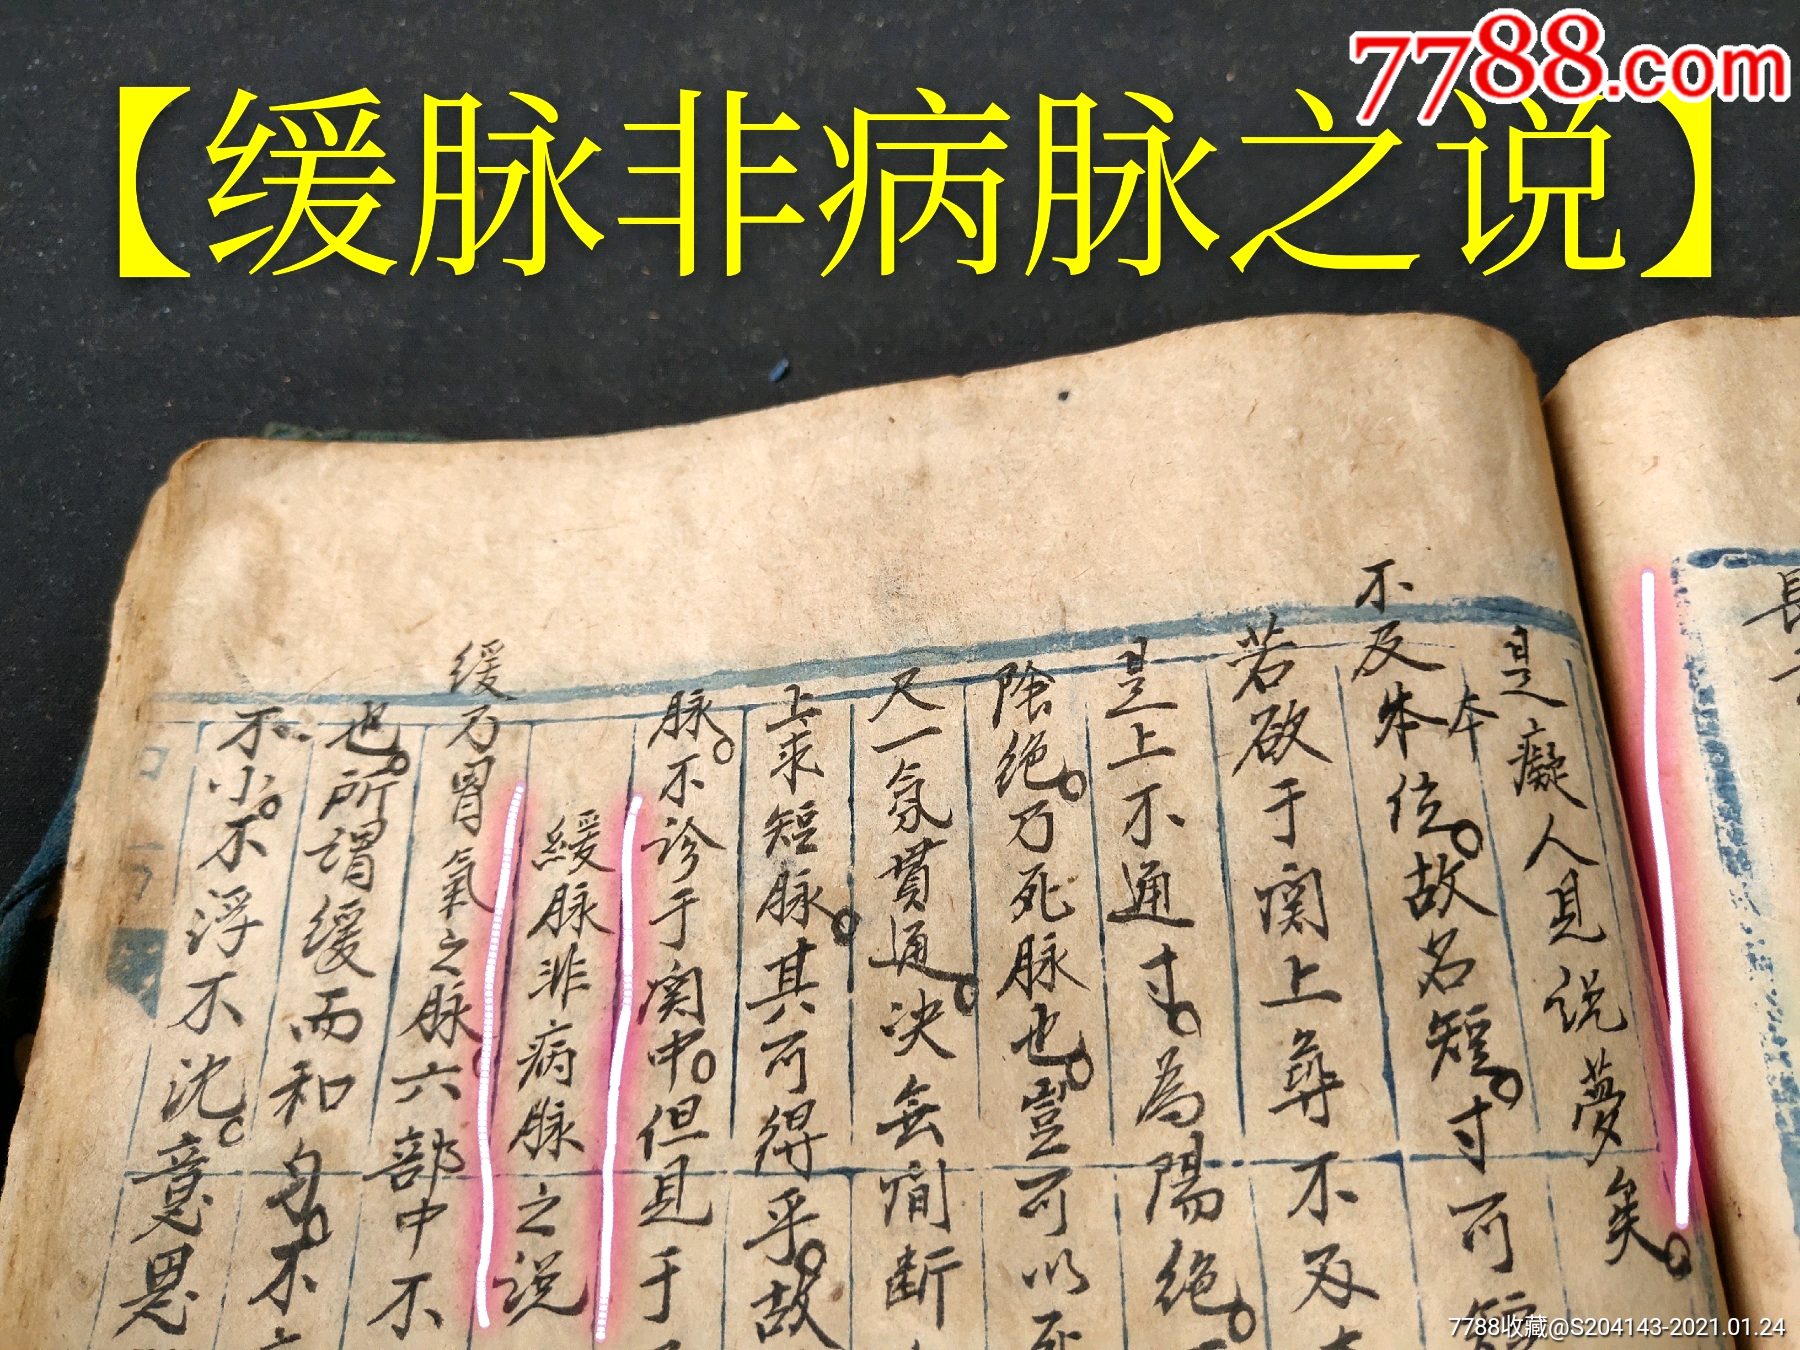 7788.com
【缓脉非病脉之说】
長
是癡人見说夢矣。
不及本本位。故名短。寸可短
若欲于関上尋不及
是上不通寸。為陽絶。
陰絶。乃死脉也。豈可以死
尺一氣貫通。決無间断
上求短脉。其可得乎。故
脉。不诊于関中。但見于
緩脉非病脉之说
缓乃胃氣之脉。六部中不
也。所谓缓而和匀。不
不小。不浮不沈。意思
7788收藏@S204143-2021.01.24